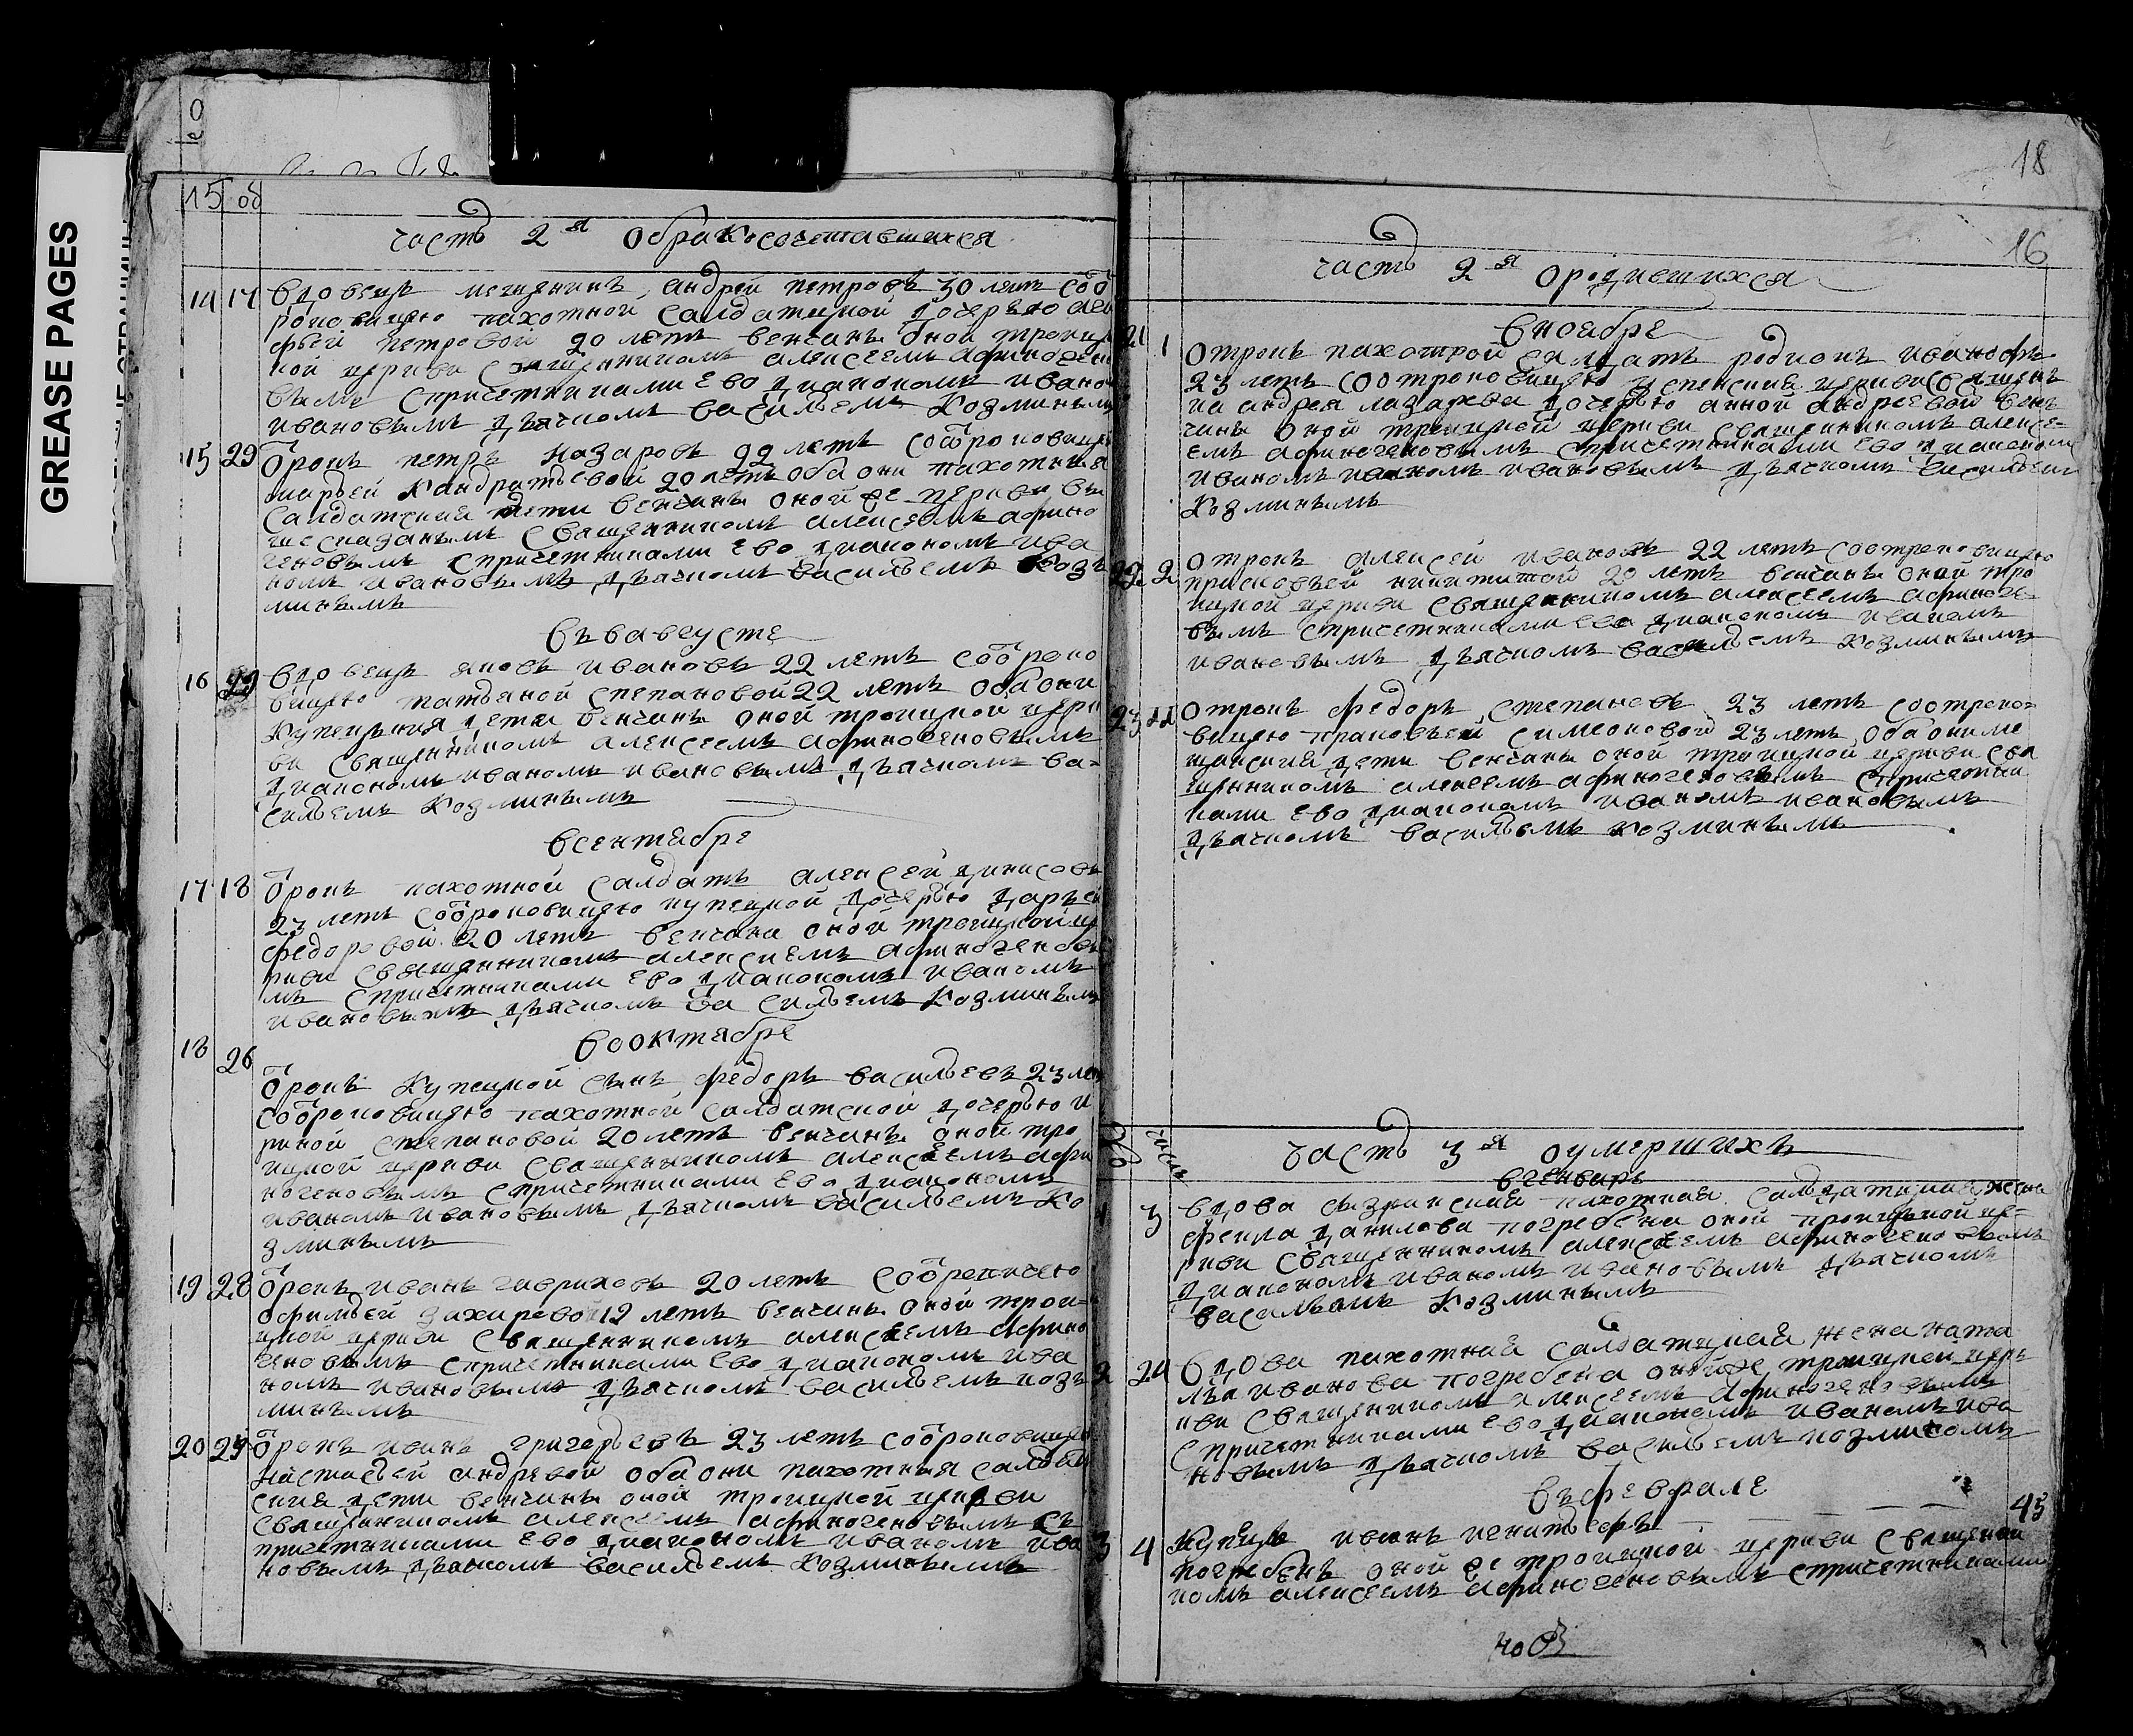 GREASE PAGES
15 об
часть 2я обракосочетавшихся
14 17 вдовецъ мещенинъ андрей петровъ 30 летъ сот
роковицею пахотной салдатцкой дочерью
петровой 20 летъ венчаны оной троиц
кой церкви священникомъ алексеемъ афиноген
вымъ спричетниками ево диакономъ ивано
ивановымъ дьячкомъ васильемъ козминым
15 29 Отрокъ петръ назаровъ 22 летъ сотроковице
марьей кандратьевой 20 летъ оба они пахотныя
салдатския дети венчаны оной же церкви вы
шесказанымъ священникомъ алексеемъ афино
геновымъ спричетниками ево диакономъ ива
номъ ивановымъ дьячкомъ васильемъ козъ
минымъ
въ августе
16 вдовецъ яковъ ивановъ 22 летъ сотроко
вицею татьяной степановой 22 летъ оба они
купецкия дети венчаны оной троицкой церк
ви священникомъ алексеемъ афиногеновымъ
диакономъ иваномъ ивановымъ дьячкомъ ва-
сильемъ козминымъ
всентябре
17 18 Отрокъ пахотной салдатъ алексей динисовъ
23 летъ сотроковицею купецкой дочерью дарьей
федоровой 20 летъ венчаны оной троицкой це
ркви священникомъ алексиемъ афиногеновы
мъ спричетниками ево диакономъ иваномъ
ивановымъ дьячкомъ васильемъ козминымъ
вооктябре
18 26
Отрокъ купецкой сынъ федоръ васильевъ 23 лет
сотроковицею пахотной салдатской дочерью и
риной степановой 20 летъ венчаны оной тро
ицкой церкви священникомъ алексеемъ афи
ногеновымъ спричетниками ево диакономъ
иваномъ ивановымъ дьячкомъ васильемъ ко
зминымъ
19 28 Отрокъ иванъ гавриловъ 20 летъ
офимьей захаровой 19 летъ венчаны оной трои-
цкой церкви священникомъ алексеемъ афино
геновымъ спричетниками ево диакономъ ива
номъ ивановымъ дьячкомъ васильемъ козъ
минымъ
20 29 Отрокъ иванъ григорьевъ 23 летъ сотроковицею
настасьей андревой оба они пахотныя салдат
ския дети венчаны оной троицкой церкви
священникомъ алексеемъ афиногеновымъ съ
причетниками ево диакономъ иваномъ ива
новымъ дьячкомъ васильемъ козминымъ
18
16
часть 2я о родившихся
вноябре
21 1 Отрокъ пахотной салдатъ родионъ ивановъ
23 летъ соотроковицею успенския церкви священ
ка андрея лазарева дочерью анной андреевой вен
чаны оной троицкой церкви священникомъ алексе-
емъ афиногеновымъ спричетниками ево диакономъ
иваномъ ивановымъ дьячкомъ васильемъ
козминымъ
22 2 Отрокъ алексей ивановъ 22 летъ соотроковицею
прасковьей никитиной 20 летъ венчаны оной тро
ицкой церкви священникомъ алексеемъ афиноге-
вымъ спричетниками ево диакономъ иваномъ
ивановымъ дьячкомъ васильемъ козминымъ
23 11 Отрокъ федоръ степановъ 23 летъ соотроко-
вицею прасковьей симеоновой 23 летъ оба они ме
щанския дети венчаны оной троицкой церкви свя
щенникомъ алексеемъ афиногеновымъ спричетни
ками ево диакономъ иваномъ ивановымъ
дьячкомъ васильемъ козминымъ
часть 3я о умершихъ
вгенваре
1 3 вдова сызранская пахотная салдатцкая жена
фекла данилова погребена оной троицкой це-
ркви священникомъ алексеемъ афиногеновымъ
диакономъ иваномъ ивановымъ дьячкомъ
васильемъ козминымъ
2 24 вдова пахотная салдатцкая жена ната
лья иванова погребена оной же троицкой церъ
кви священникомъ алексеемъ афиногеновымъ
спричетниками ево диакономъ иваномъ ива
новымъ дьячкомъ васильемъ козминомъ
въ феврале
3 4 Купецъ иванъ игнатьевъ 45
погребенъ оной же троицкой церкви священни
комъ алексеемъ афиногеновымъ спричетниками